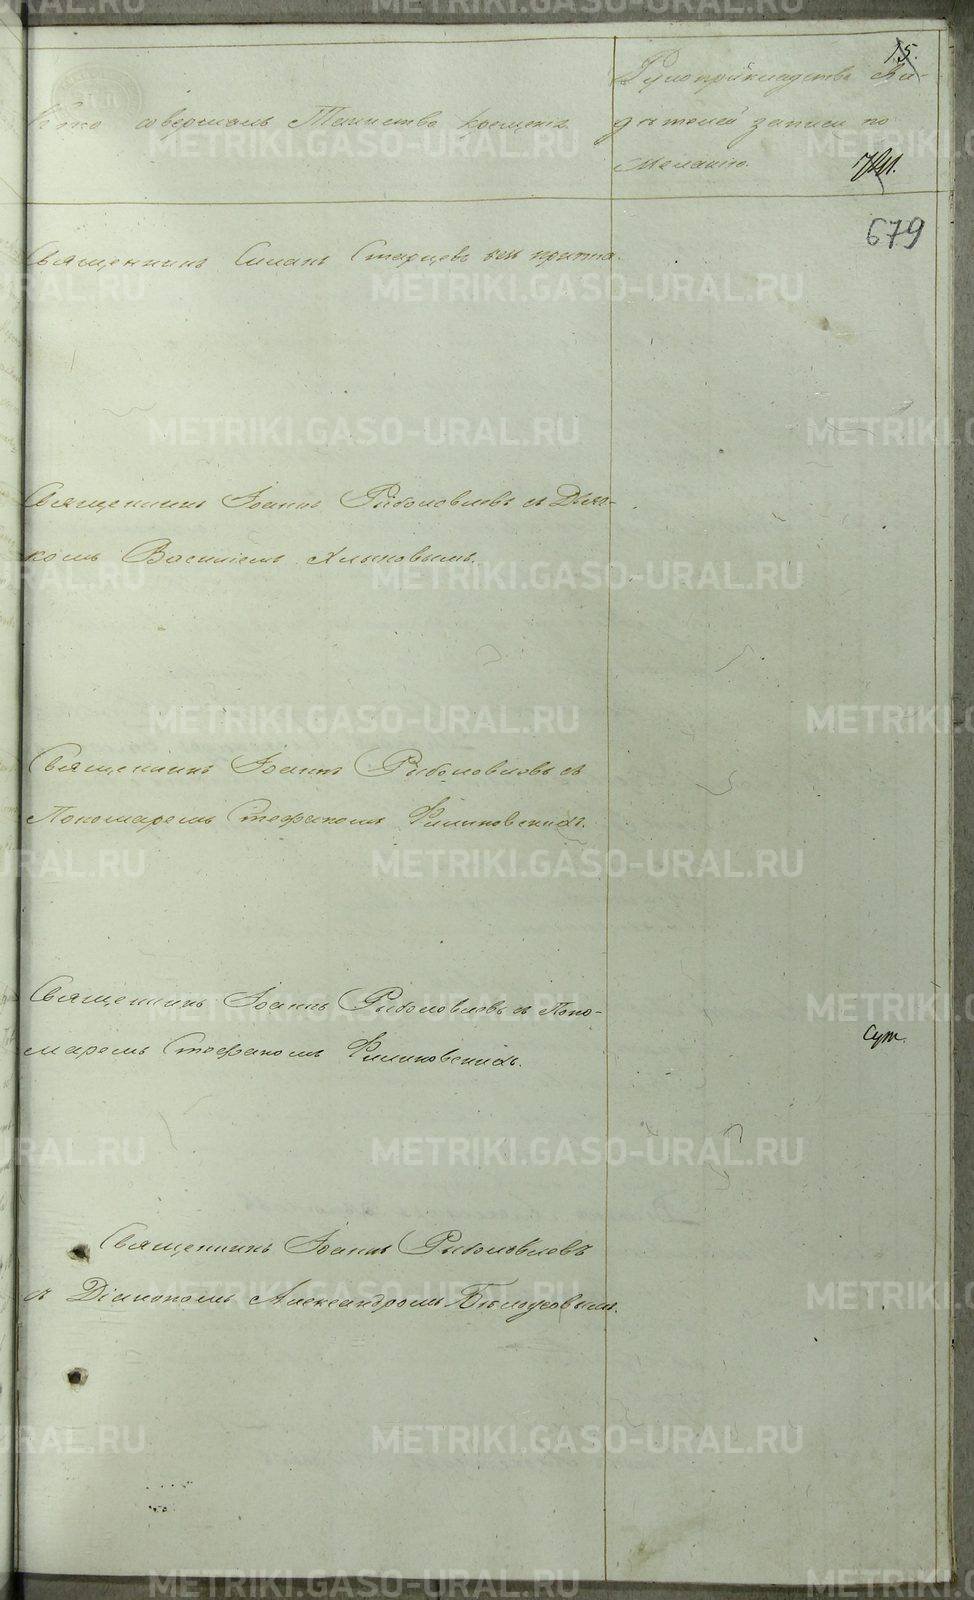 15.
Кто совершалъ Таинство крещенія
Рукоприкладство Сви-
дѣтелей записи по
желанію.
679
Священникъ Стефанъ Старцевъ безъ причта.
Священникъ Іоаннъ Рыболовлевъ съ Дьяч-
комъ Василіемъ Хлыновымъ.
Священникъ Іоаннъ Рыболовлевъ съ
Пономаремъ Стефаномъ Филиповскихъ.
Священникъ Іоаннъ Рыболовлевъ съ Поно-
маремъ Стефаномъ Филиповскихъ.
Сут.
Священникъ Іоаннъ Рыболовлевъ
съ Діакономъ Александромъ Бѣлоусовымъ.
METRIKI.GASO-URAL.RU